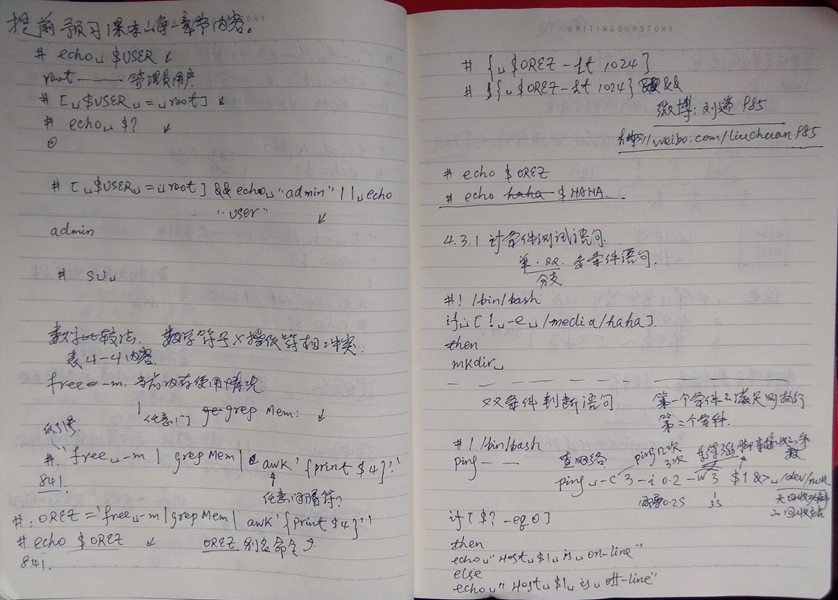 提前预习课本每一章节内容。
# echo␣$USER ↙
root —— 管理员用户
# [␣$USER␣=␣root] ↙
# echo␣$? ↙
0
# [␣$USER␣=␣root] && echo␣"admin" ||␣echo
"user" ↙
admin
# su␣
数字比较法. 数学符号×
表4-4内容
free -m. 当前内存使用情况
grep Mem: ↙
#. `free␣-m | grep Mem | awk '{print $4}'`
841.
#. OREZ=`free␣-m | grep Mem | awk '{print $4}'`
# echo $OREZ ↙ OREZ 别名命令
841.
WRITING OUR STORY
# [␣$OREZ -lt 1024]
# [␣$OREZ -lt 1024] &&
微博: 刘遄 P85
http://weibo.com/liuchuan P85
# echo $OREZ
# echo haha $HAHA.
4.3.1 对条件测试语句
单.双.多条件语句.
分支
#! /bin/bash
if␣[!␣-e␣/media/haha]
then
mkdir␣
双条件判断语句 第一个条件不满足则执行
第二个条件.
#! /bin/bash
ping — — 查网络 ping几次
3次
ping␣-c 3 -i 0.2 -W 3 $1 &>␣/dev/null
0.2s 3s
if [$? -eq 0]
then
echo␣"Host␣$1␣is␣on-line"
else
echo␣"Host␣$1␣is␣off-line"